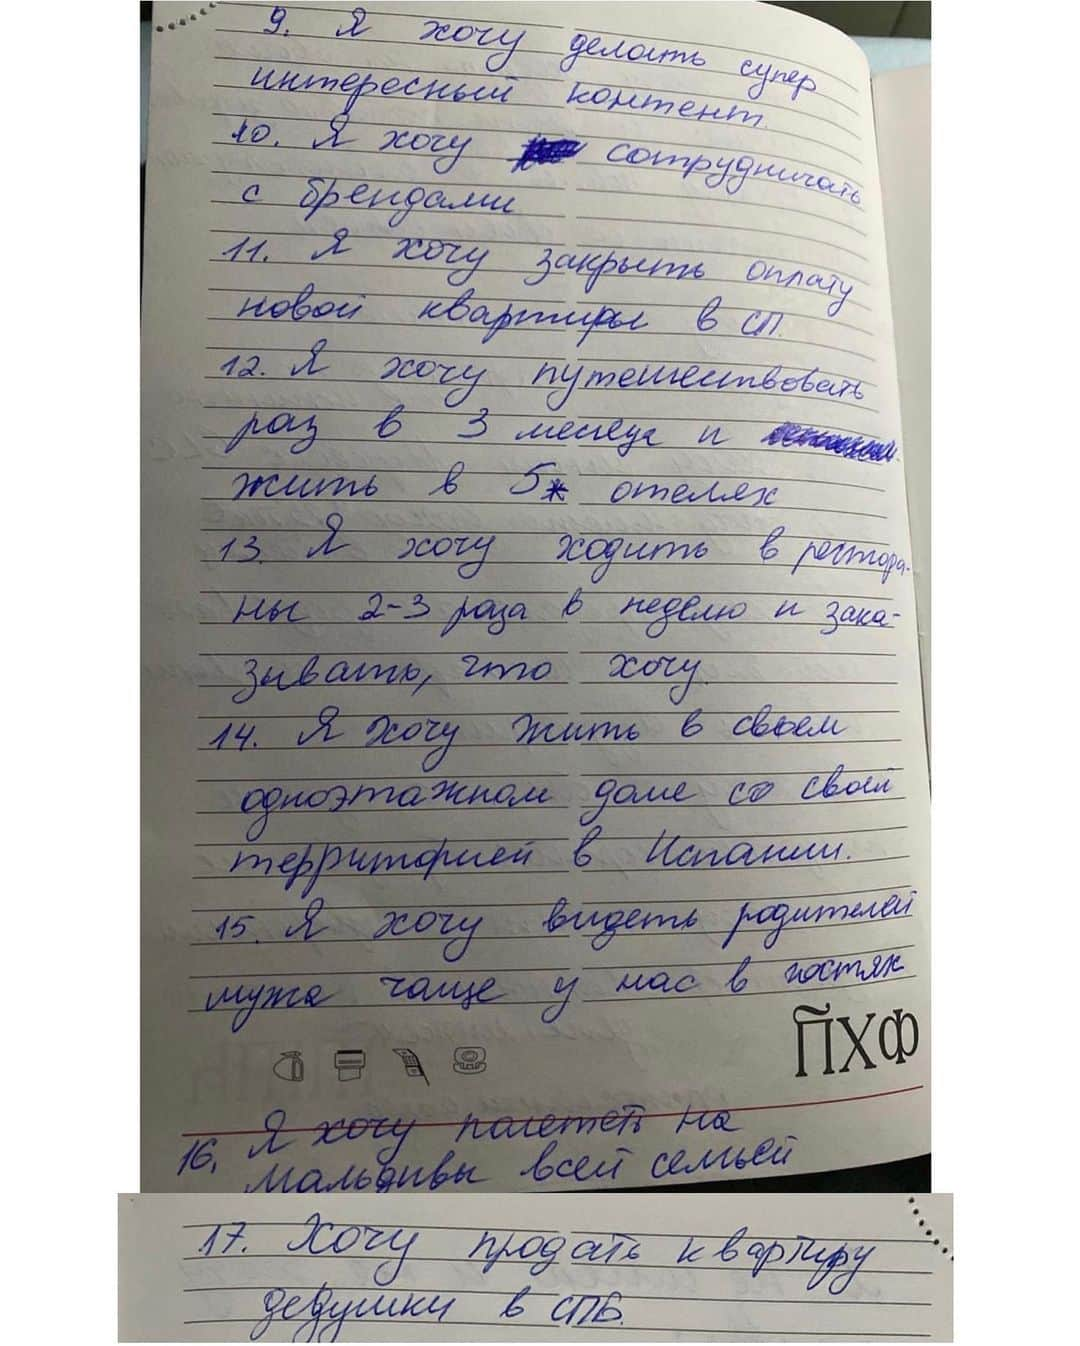 9. Я хочу делать супер
интересный контент.
10. Я хочу сотрудничать
с брендами
11. Я хочу закрыть оплату
новой квартиры в СП.
12. Я хочу путешествовать
раз в 3 месяца и
жить в 5* отелях
13. Я хочу ходить в рестора-
ны 2-3 раза в неделю и зака-
зывать, что хочу.
14. Я хочу жить в своем
одноэтажном доме со своей
территорией в Испании.
15. Я хочу видеть родителей
мужа чаще у нас в гостях
ПХФ
16. Я хочу полететь на
Мальдивы всей семьей
17. Хочу продать квартиру
дедушки в СПб.